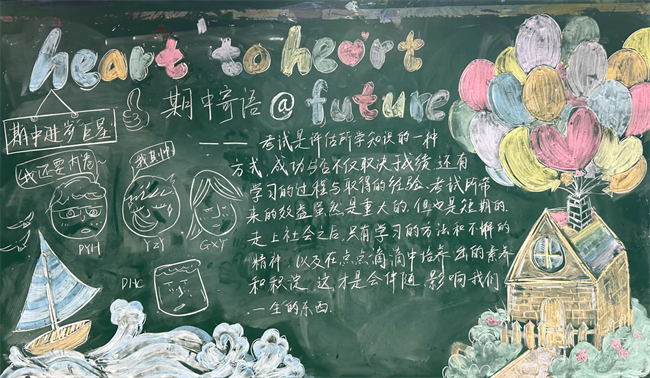 heart to heart
期中寄语@future
期中进步巨星
我还要
PYH
YZY
GXY
—— 考试是评估所学知识的一种
方式,成功与否不仅取决于成绩,还有
学习的过程与取得的经验.考试所带
来的效益虽然是重大的,但也是短期的.
走上社会之后,只有学习的方法和不懈的
精神,以及在点点滴滴中培养出的素养
和积淀,这才是会伴随,影响我们
一生的东西.